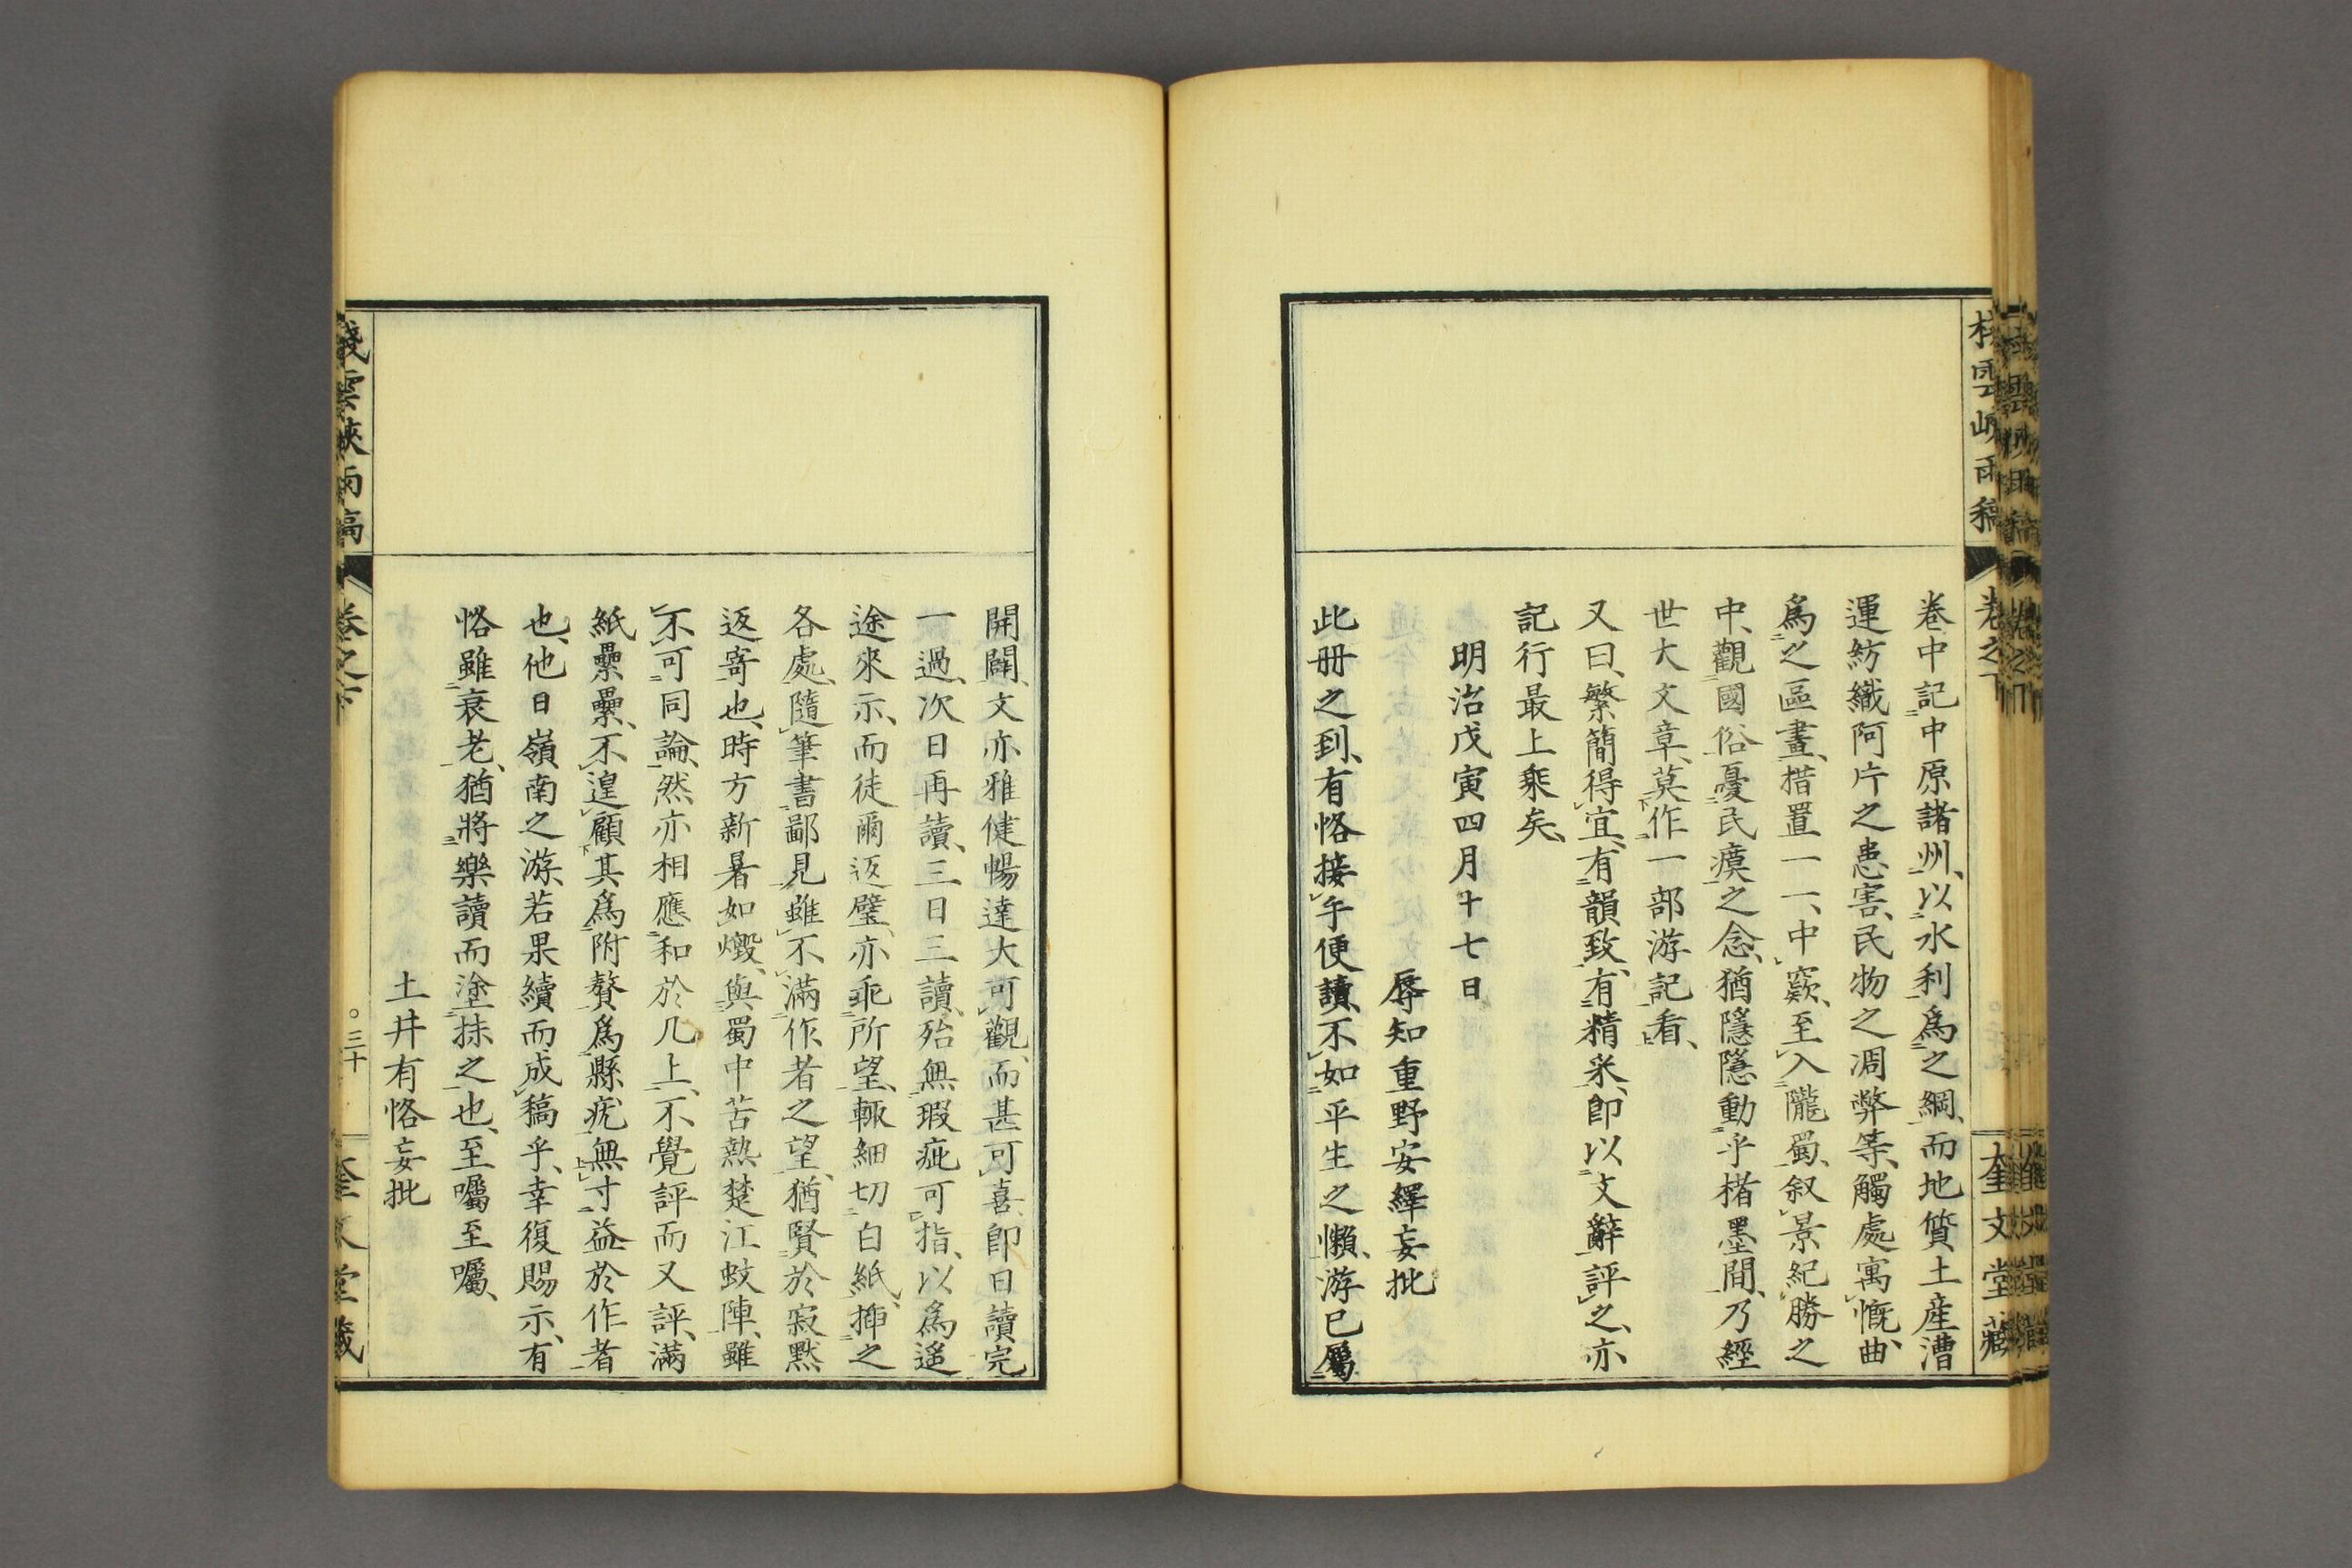 卷中記中原諸州、以水利爲之綱、而地質土産漕
運紡織阿片之患害、民物之凋弊等、觸處寓慨、曲
爲之區畫、措置一一、中窾、至入隴蜀、叙景紀勝之
中、觀國俗憂民瘼之念、猶隱隱動乎楮墨間、乃經
世大文章、莫作一部游記看、
又曰、繁簡得宜、有韻致、有精采、即以文辭評之、亦
記行最上乘矣、
明治戊寅四月十七日
辱知重野安繹妄批
此册之到、有恪接手便讀、不如平生之懶、游已屬
開闢、文亦雅健暢達大可觀、而甚可喜、即日讀完
一過、次日再讀、三日三讀、殆無瑕疵可指、以爲遙
途來示、而徒爾返璧、亦乖所望、輙細切白紙、挿之
各處、隨筆書鄙見、雖不滿作者之望、猶賢於寂默
返寄也、時方新暑如燬、與蜀中苦熱楚江蚊陣、雖
不可同論、然亦相應和於几上、不覺評而又評、滿
紙纍纍、不遑顧其爲附贅爲縣疣、無寸益於作者
也、他日嶺南之游、若果續而成稿乎、幸復賜示、有
恪雖衰老、猶將樂讀而塗抹之也、至囑至囑、
土井有恪妄批
棧雲峽雨稿
卷之下
奎文堂藏
棧雲峽雨稿
卷之下
三十
奎文堂藏